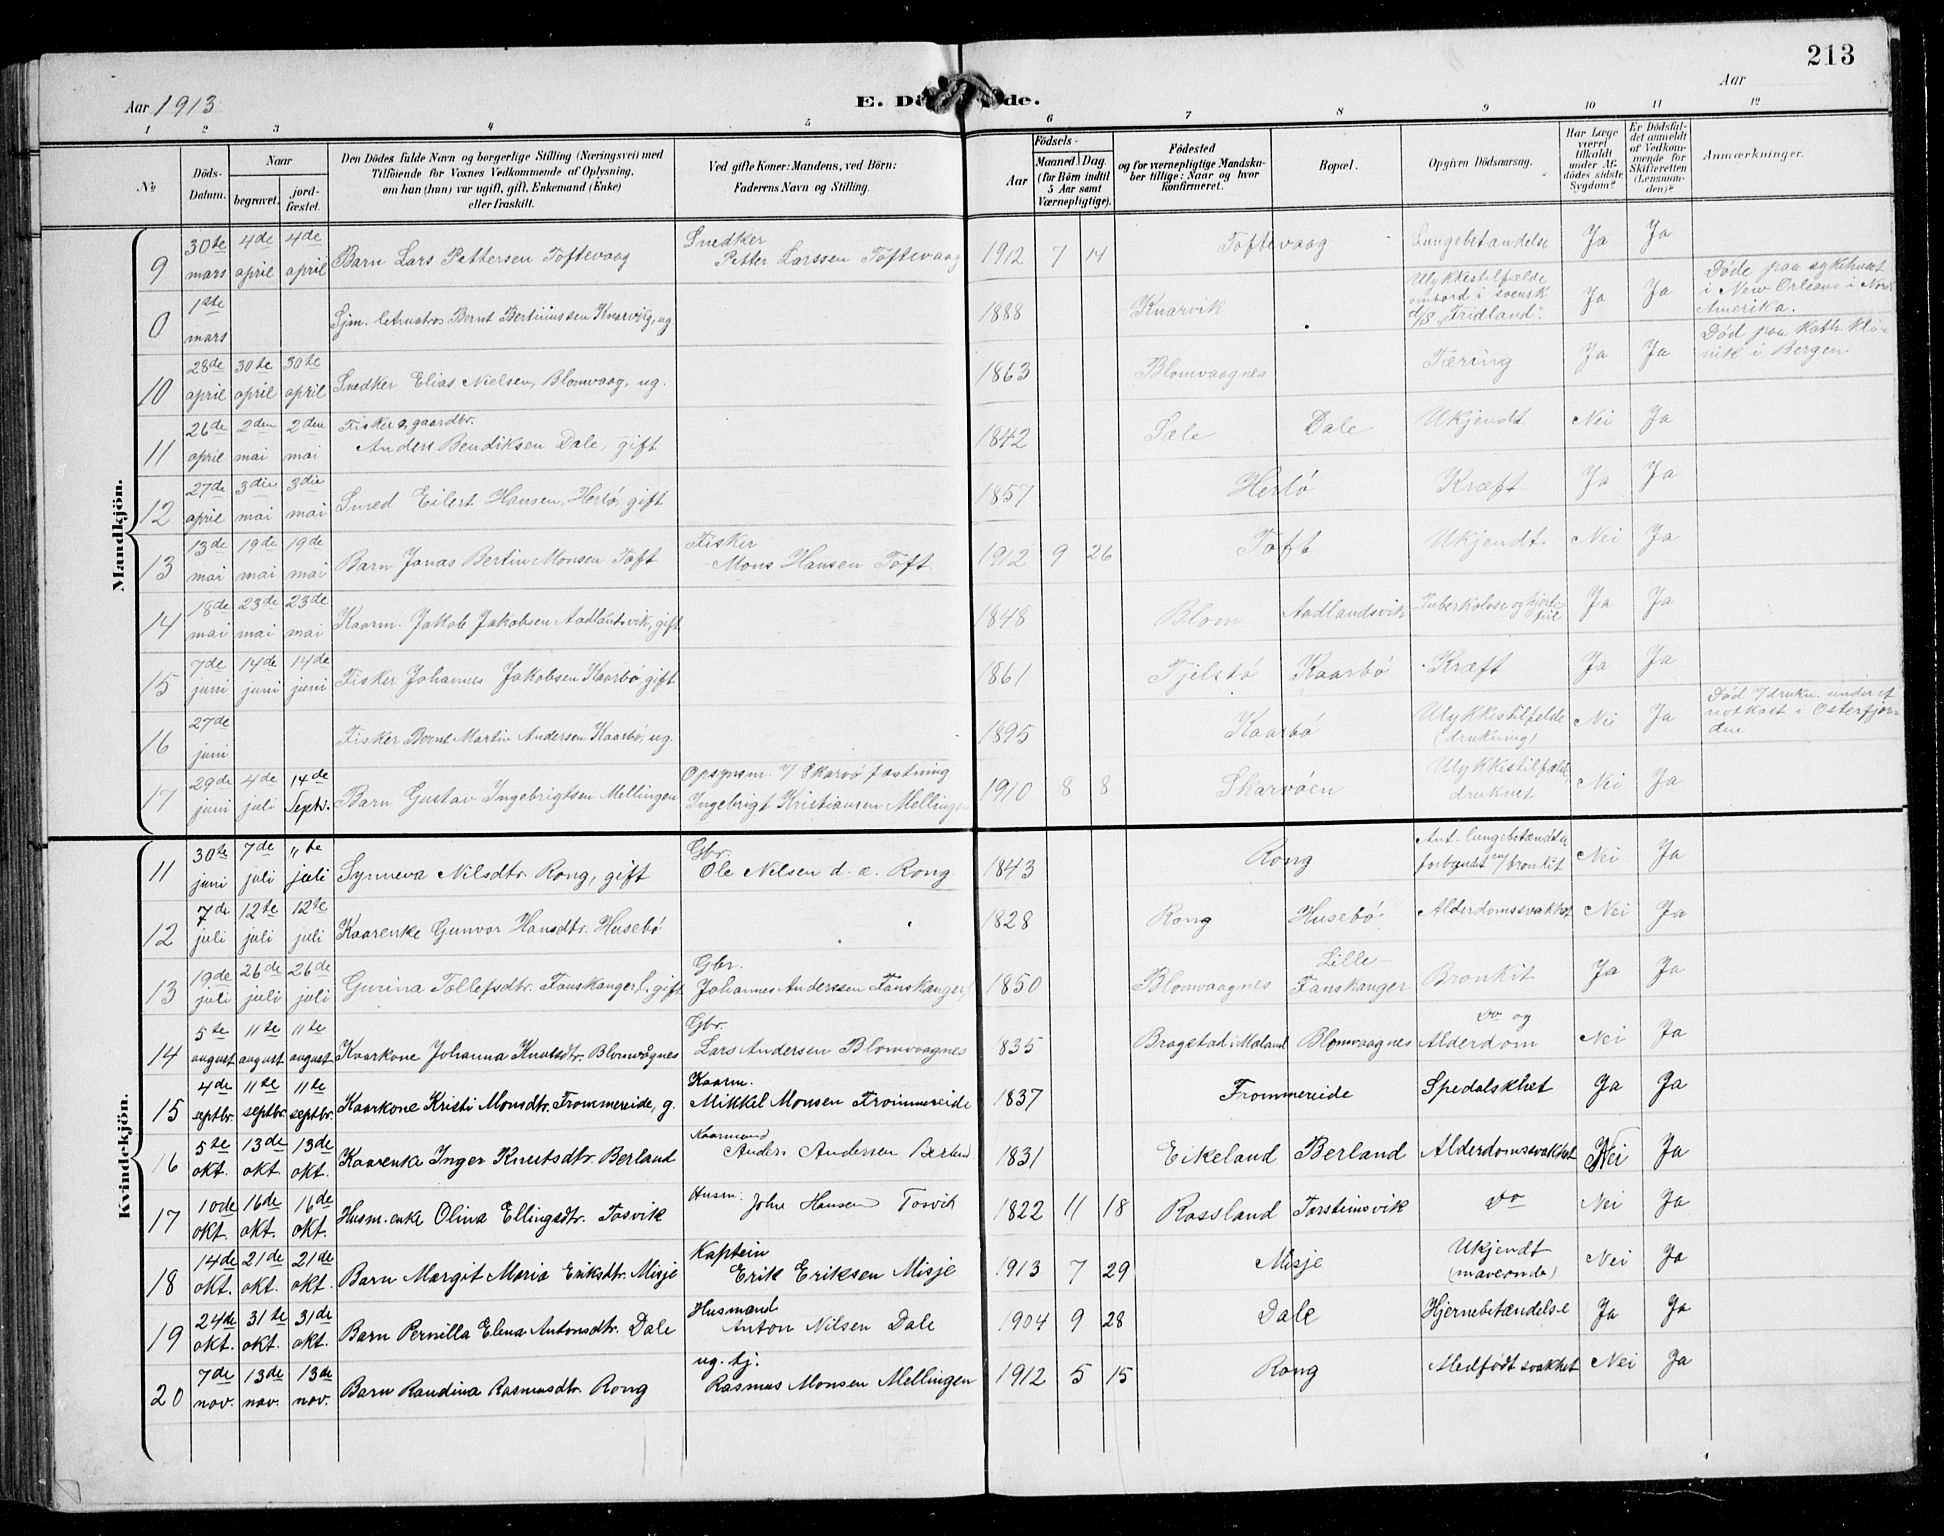 213
Aar 1913
E. Dö de.
Aar
1 2 3 4 5 6 7 8 9 10 11 12
No
Döds-Datum.
Naar
begravet.
jord-fæstet.
Den Dödes fulde Navn og borgerlige Stilling (Næringsvei) med
Tilföiende for Voxnes Vedkommende af Oplysning,
om han (hun) var ugift, gift, Enkemand (Enke)
eller fraskilt.
Ved gifte Koner: Mandens, ved Börn:
Faderens Navn og Stilling.
Födsels-
Aar
Maaned. Dag.
(for Börn indtil
5 Aar samt
Værnepligtige).
Födested
og for værnepligtige Mandska-
ber tillige: Naar og hvor
konfirmeret.
Bopæl.
Opgiven Dödsaarsag.
Har Læge
været
tilkaldt
under Af-
dödes sidste
Sygdom?
Er Dödsfal-
det anmeldt
af Vedkom-
mende for
Skifteretten
(Lensman-
den)?
Anmærkninger.
Mandkjön.
9 30te mars 4de april 4de april Barn Lars Pettersen Toftevaag Snedker Petter Larssen Toftevaag 1912 7 14 Toftevaag Lungebetandelse Ja Ja
0 1ste mars Sjm. Bernt Bertiniussen Knarvig, ug. 1888 Knarvik Ulykkestilfælde ombord i svensk "Fridland". Ja Ja Döde paa sykehuset i New Orleans i Nord Amerika.
10 28de april 30te april 30te april Snedker Elias Nielsen, Blomvaag, ug. 1863 Blomvaagnes Tæring Ja Ja Död paa Kath. klinik i Bergen
11 26de april 2den mai 2den mai Fisker o, gaardbr. Anders Bendiksen Dale, gift 1842 Sæle Dale Ukjendt Nei Ja
12 27de april 3die mai 3die mai Smed Eilert Hansen, Herlö, gift 1857 Herlö Kræft Ja Ja
13 13de mai 19de mai 19de mai Barn Jonas Bertin Monsen Toft Fisker Mons Hansen Toft 1912 9 26 Toft Ukjendt. Nei Ja
14 18de mai 23de mai 23de mai Kaarm. Jakob Jakobsen Aadlandsvik, gift 1848 Blom Aadlandsvik Tuberkolose og hjertefeil Ja Ja
15 7de juni 14de juni 14de juni Fisker Johannes Jakobsen Kaarbö, gift 1861 Tjelstö Kaarbö Kræft Ja Ja
16 27de juni Fisker Bernt Martin Andersen Kaarbö, ug. 1895 Kaarbö Ulykkestilfelde (drukning) Nei Ja Död v/ drukn. under et notkast i Osterfjorden
17 29de juni 4de juli 14de Septr. Barn Gustav Ingebrigtsen Mellingen Opsynsm. v/ Skarvö fæstning Ingebrigt Kristiansen Mellingen 1910 8 8 Skarvöen Ulykkestilfælde, druknet Nei Ja
Kvindekjön.
11 30te juni 7de juli 11te juli Synneva Nilsdtr. Rong, gift Gbr. Ole Nilsen d. æ. Rong 1843 Rong Ant. lungebetændelse forbundet m/ bronkit Nei Ja
12 7de juli 12te juli 12te juli Kaarenke Gunvor Hansdtr. Husebö 1828 Rong Husebö Alderdomssvakhet Nei Ja
13 19de juli 26de juli 26de juli Gurina Tollefsdtr. Fonskanger l., gift Gbr. Johannes Anderssen Fanskanger l. 1850 Blomvaagnes Lille-Fanskanger Bronkit Ja Ja
14 5te august 11te august 11te august Kaarkone Johanna Knutsdtr. Blomvågnes Gbr. Lars Andersen Blomvaagnes 1835 Bragstad i Moland Blomvaagnes do og Alderdom Nei Ja
15 4de septbr. 11te septbr. 11te septbr. Kaarkone Kristi Monsdtr. Frommereide, g. Kaarm. Mikkel Monsen Frommereide 1837 Frommereide Spedalskhet Ja Ja
16 5te okt. 13de okt. 13de okt. Kaarenke Inger Knutsdtr. Berland Kaarmand Anders Andersen Berland 1831 Eikeland Berland Alderdomssvakhet Nei Ja
17 10de okt. 16de okt. 16de okt. Husm. enke Olina Ellingsdtr. Tosvik Husm. Johs Hansen Tosvik 1822 11 18 Rossland Torsteinsvik do Nei Ja
18 14de okt. 21de okt. 21de okt. Barn Margit Maria Eriksdtr. Misje Kaptein Erik Eriksen Misje 1913 7 29 Misje Ukjendt (maveonde) Nei Ja
19 24de okt. 31te okt. 31de okt. Barn Pernilla Elena Antonsdtr. Dale Husmand Anton Nilsen Dale 1904 9 28 Dale Hjernebetændelse Ja Ja
20 7de nov. 13de nov. 13de nov. Barn Raudina Rasmusdtr. Rong ug. tj. Rasmus Monsen Mellingen 1912 5 15 Rong Medfødt svakhet Nei Ja